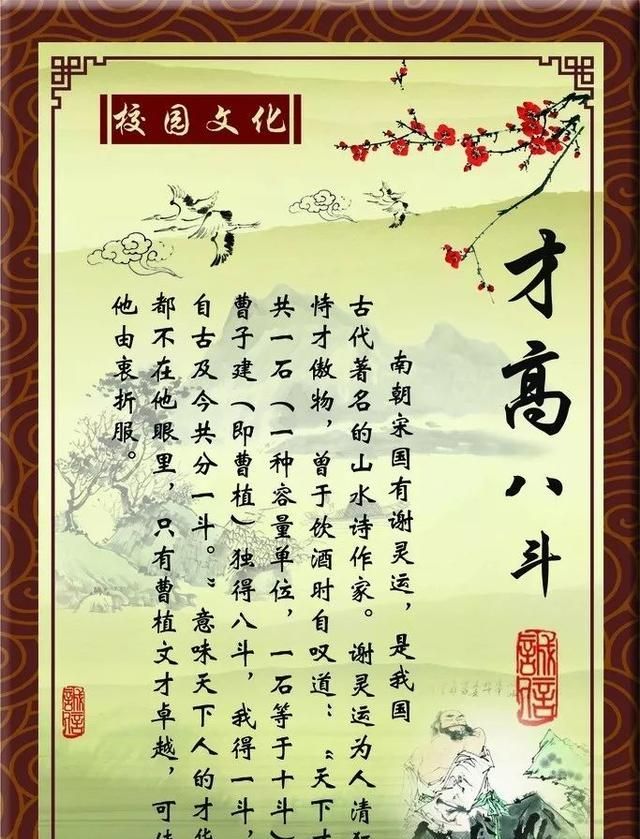 校园文化
才高八斗
南朝宋国有谢灵运，是我国
古代著名的山水诗作家。谢灵运为人清
恃才傲物，曾于饮酒时自叹道：“天下才
共一石（一种容量单位，一石等于十斗）
曹子建（即曹植）独得八斗，我得一斗，
自古及今共分一斗。”意味天下人的才华
都不在他眼里，只有曹植文才卓越，可
他由衷折服。
誠信
誠信